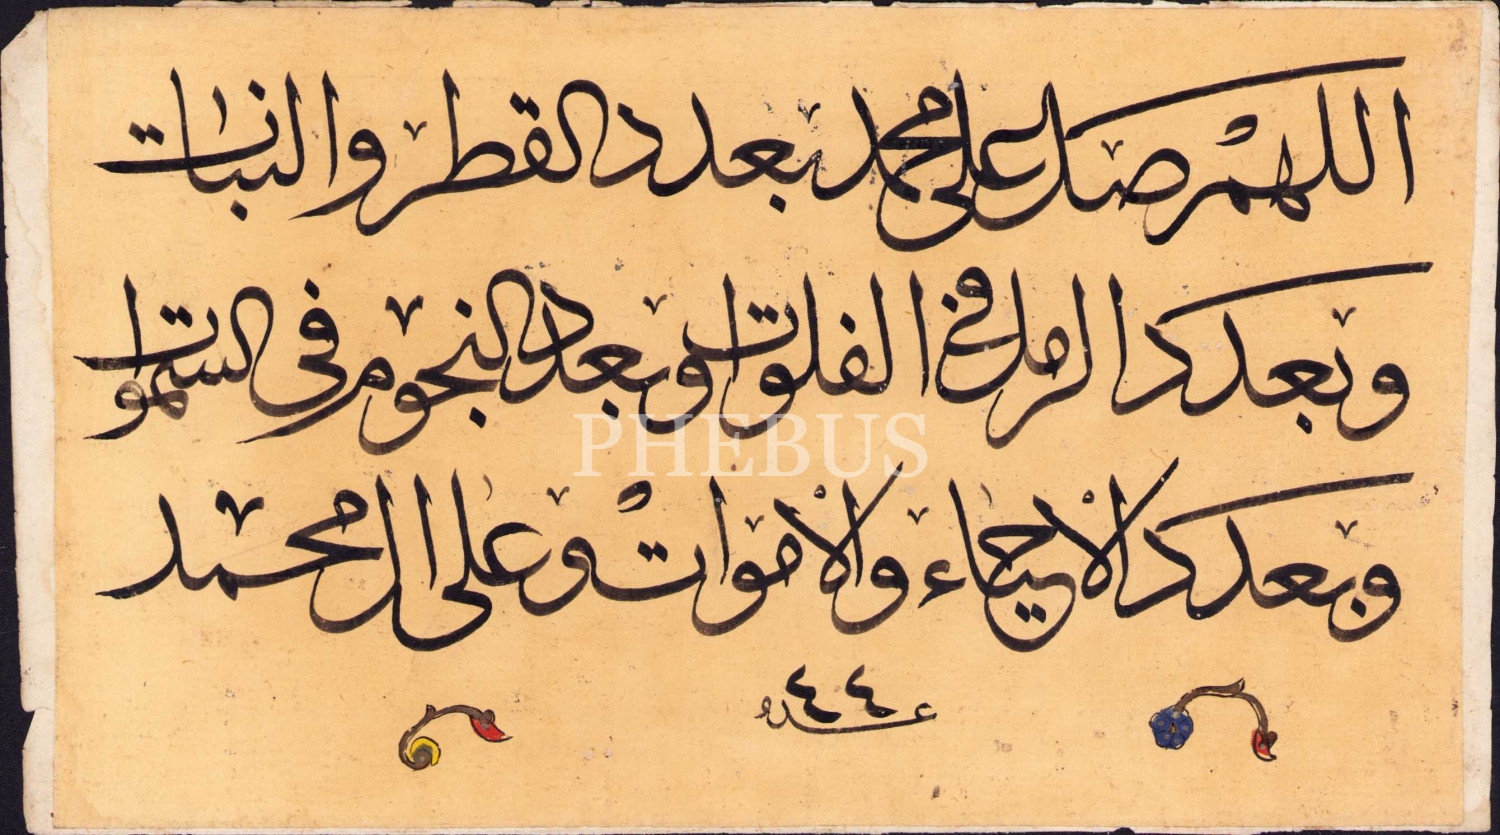 اللهم صل على محمد بعدد القطر والنبات
وبعدد الرمل في الفلوات وبعدد النجوم في السموات
PHEBUS
وبعدد الاحياء والاموات وعلى ال محمد
عدده ٤٤